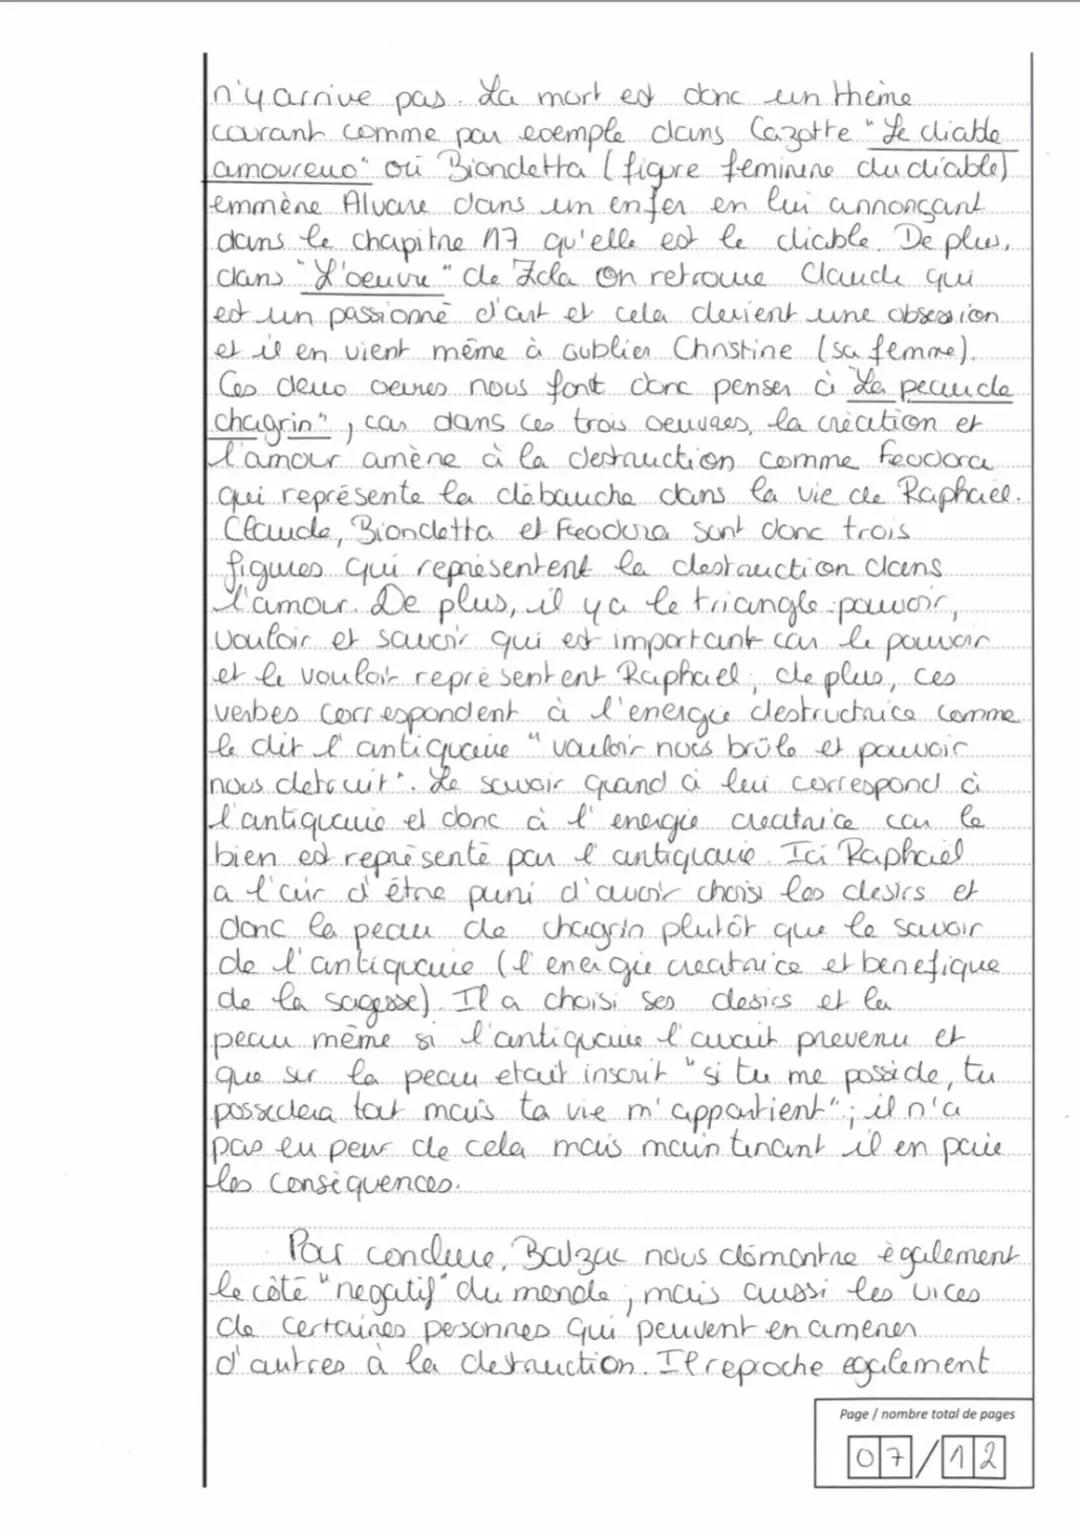 n'y arrive pas. La mort est donc un thème
courant comme par exemple dans Cazotte "Le diable
amoureux" où Biondetta (figure feminine du diable)
emmène Alvare dans un enfer en lui annonçant
dans le chapitre 17 qu'elle est le diable. De plus,
dans "L'oeuvre" de Zola on retrouve Claude qui
est un passionné d'art et cela devient une obsession
et il en vient même à oublier Christine (sa femme).
Ces deux oeuvres nous font donc penser à La peau de
chagrin", car dans ces trois oeuvres, la création et
l'amour amène à la destruction comme Feodora
qui représente la débauche dans la vie de Raphaël.
Claude, Biondetta et Feodora sont donc trois
figures qui représentent la destruction dans
l'amour. De plus, il y a le triangle pouvoir,
vouloir et savoir qui est important car le pouvoir
et le vouloir représentent Raphael, de plus, ces
verbes correspondent à l'energie destructrice comme
le dit l'antiquaire "vouloir nous brûle et pouvoir
nous detruit". Le savoir quand à lui correspond à
l'antiquaire et donc à l'energie creatrice car le
bien est représenté par l'antiquaire. Ici Raphaël
a l'air d'être puni d'avoir choisi les desirs et
donc la peau de chagrin plutôt que le savoir
de l'antiquaire (l'energie creatrice et benefique
de la sagesse). Il a choisi ses desirs et la
peau même si l'antiquaire l'avait prevenu et
que sur la peau etait inscrit "si tu me possède, tu
possedera tout mais ta vie m'appartient"; il n'a
pas eu peur de cela mais maintenant il en paie
les conséquences.
Pour conclure, Balzac nous démontre également
le côté "negatif" du monde, mais aussi les vices
de certaines personnes qui peuvent en amener
d'autres à la destruction. Il reproche egalement
Page / nombre total de pages
07/12